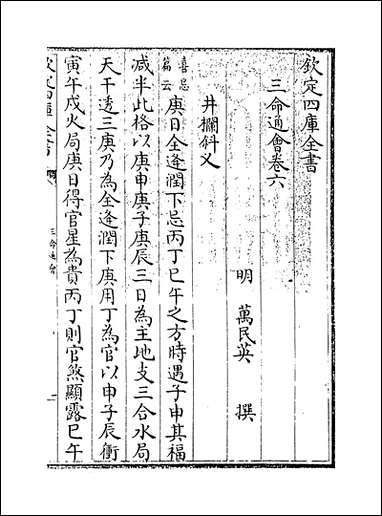 欽定四庫全書
三命通會卷六
明 萬民英 撰
井攔斜义
喜忌篇云庚日全逢潤下忌丙丁巳午之方時遇子申其福
減半此格以庚申庚子庚辰三日為主地支三合水局
天干透三庚乃為全逢潤下庚用丁為官以申子辰衝
寅午戌火局庚日得官星為貴丙丁則官煞顯露巳午
三命通會